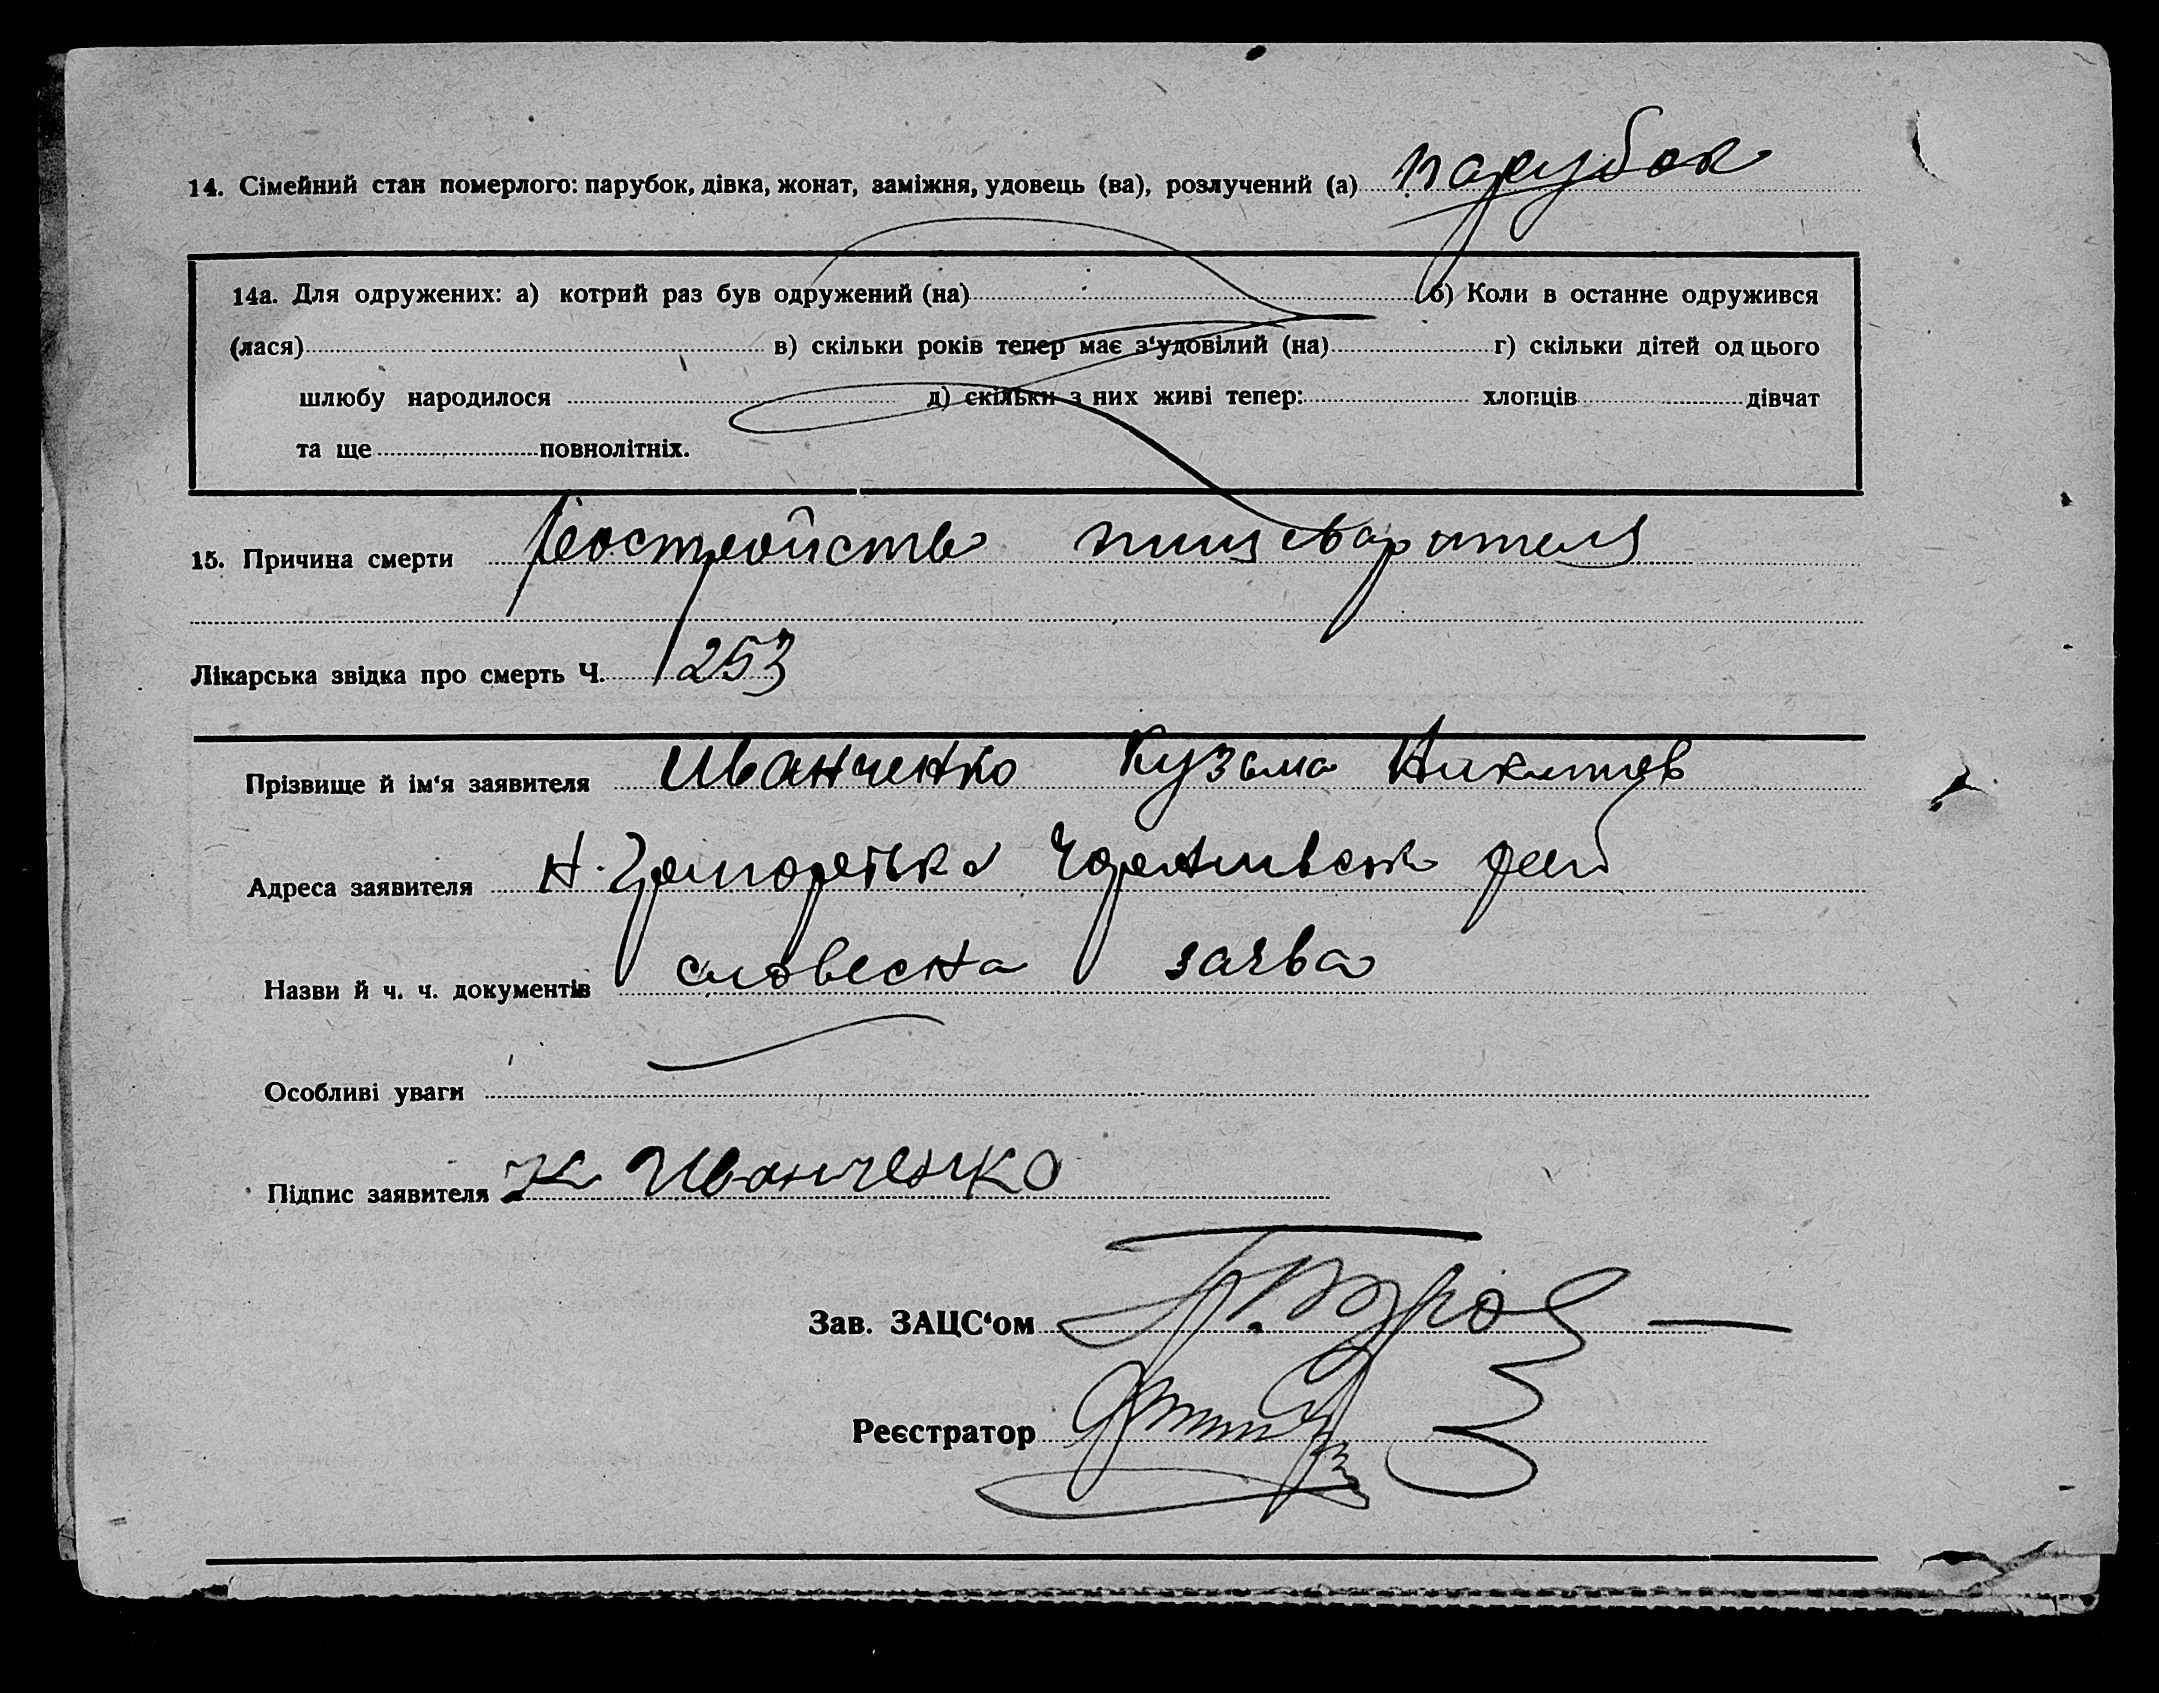 14. Сімейний стан померлого: парубок, дівка, жонат, заміжня, удовець (ва), розлучений (а) парубок
14а. Для одружених: а) котрий раз був одружений (на) б) Коли в останне одружився
(лася) в) скільки років тепер має з‘удовілий (на) г) скільки дітей од цього
шлюбу народилося д) скільки з них живі тепер: хлопців дівчат
та ще повнолітніх.
15. Причина смерти
Лікарська звідка про смерть Ч. 253
Прізвище й ім‘я заявителя Иванченко Кузьма Никитов
Адреса заявителя Н.
Назви й ч. ч. документів словесна заява
Особливі уваги
Підпис заявителя К Иванченко
Зав. ЗАЦС‘ом
Реєстратор